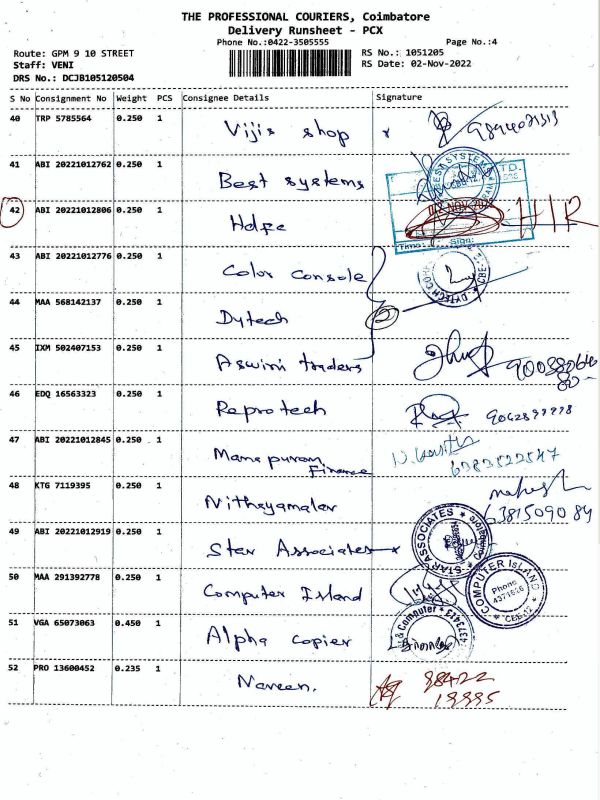 THE PROFESSIONAL COURIERS, Coimbatore
Delivery Runsheet - PCX
Phone No.:0422-3505555 Page No.:4
Route: GPM 9 10 STREET RS No.: 1051205
Staff: VENI RS Date: 02-Nov-2022
DRS No.: DCJB105120504
S No Consignment No Weight PCS Consignee Details Signature
40 TRP 5785564 0.250 1 Vijis shop
41 ABI 20221012762 0.250 1 Best systems
42 ABI 20221012806 0.250 1 Hdfc
43 ABI 20221012776 0.250 1 Color Console
44 MAA 568142137 0.250 1 Dytech
45 IXM 502407153 0.250 1 Aswini traders
46 EDQ 16563323 0.250 1 Reprotech
47 ABI 20221012845 0.250 1 Manapuram
Finance
48 KTG 7119395 0.250 1 Nithyamalar
mahesh
6381509084
49 ABI 20221012919 0.250 1 Star Associates
STAR ASSOCIATES
50 MAA 291392778 0.250 1 Computer Island
COMPUTER ISLAND
Phone
4371626
CBE-12
51 VGA 65073063 0.450 1 Alpha copier
& Computer
52 PRO 13600452 0.235 1 Naveen.
98422
19995